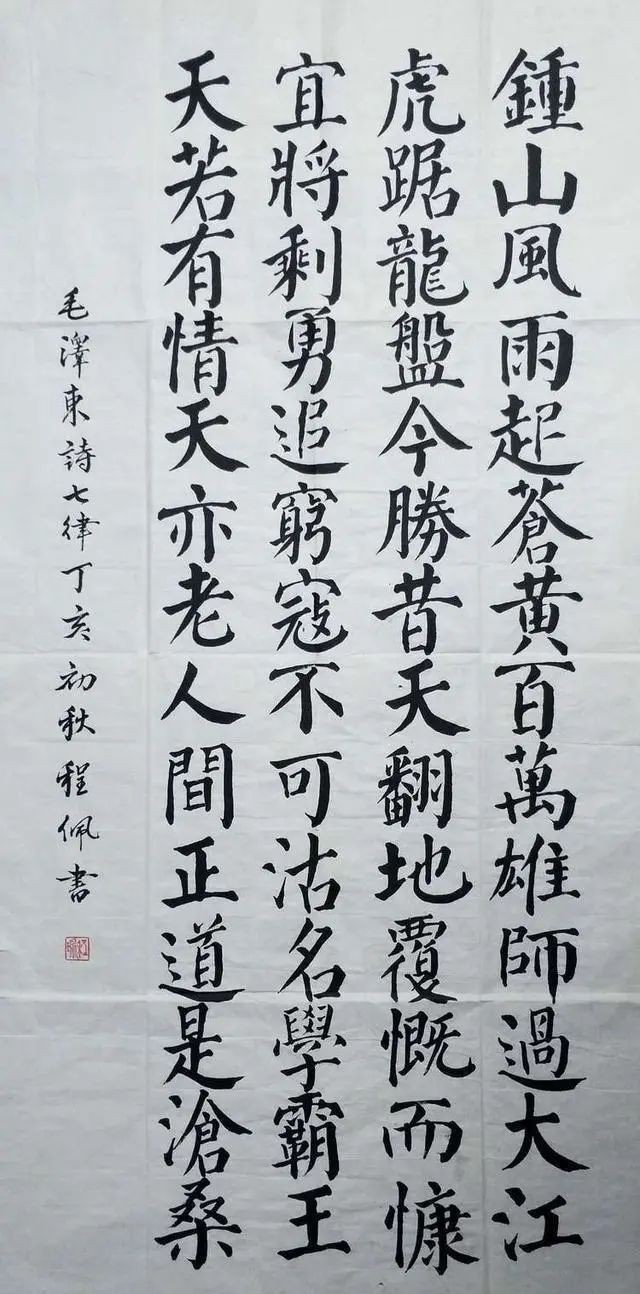 鍾山風雨起蒼黃百萬雄師過大江
虎踞龍盤今勝昔天翻地覆慨而慷
宜將剩勇追窮寇不可沽名學霸王
天若有情天亦老人間正道是滄桑
毛澤東詩七律丁亥初秋程佩書